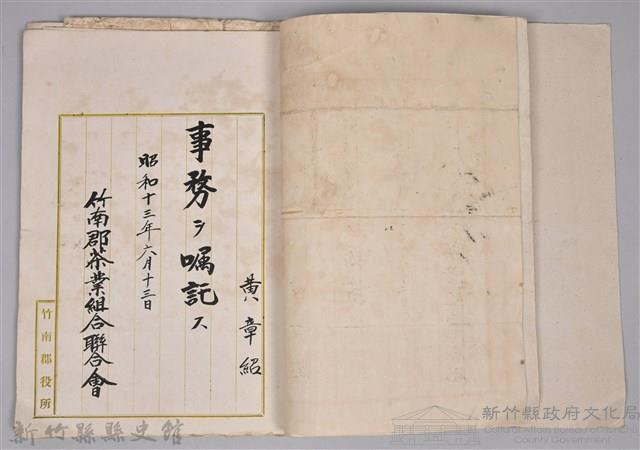 黄章紹
事務ヲ嘱託ス
昭和十三年六月十三日
竹南郡茶業組合聯合會
竹南郡役所
新竹縣縣史館
新竹縣政府文化局
Cultural Affairs Bureau of Hsinchu
County Government